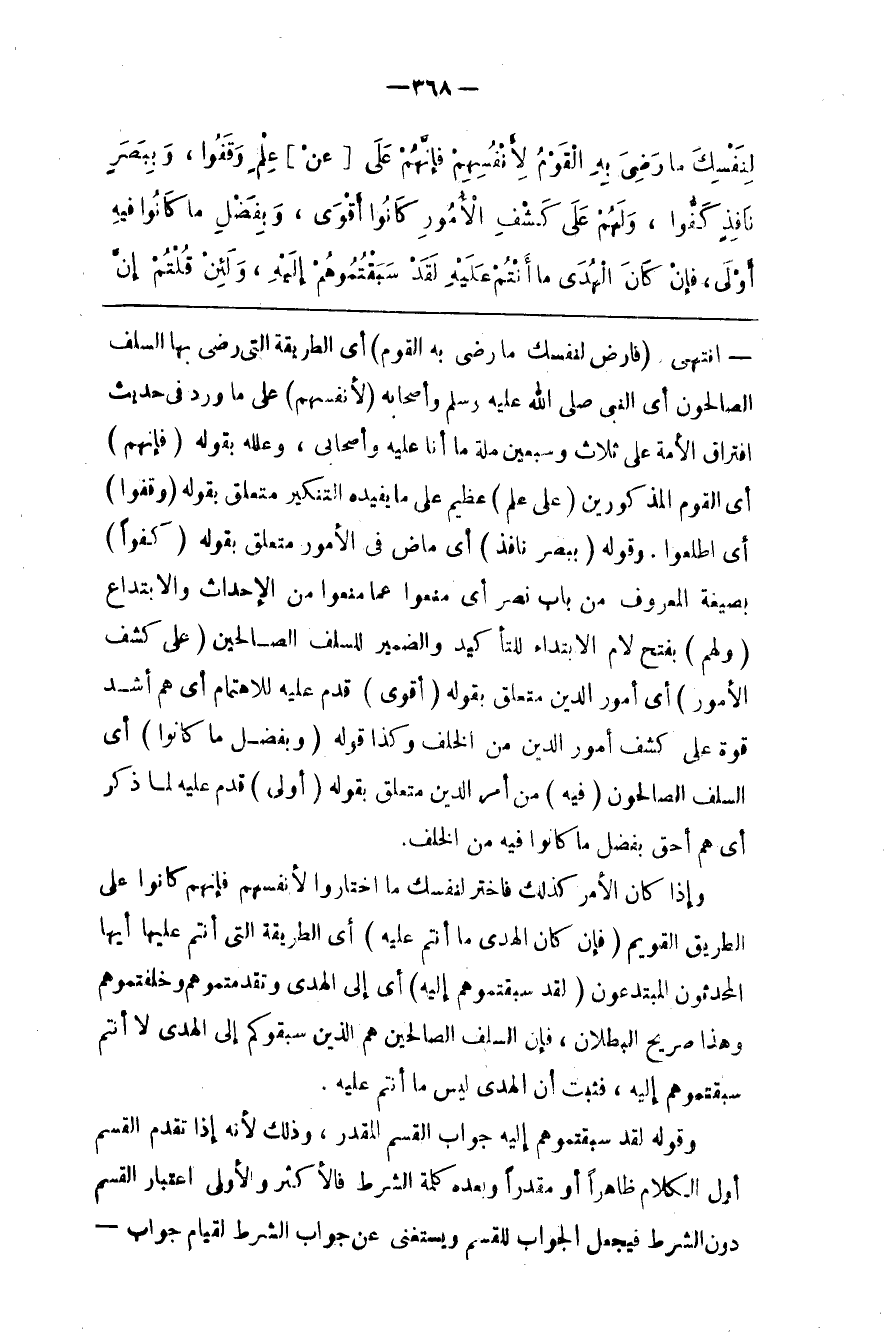 — ٣٦٨ —
لِنَفْسِكَ ما رَضِىَ بِهِ الْقَوْمُ لِأَنْفُسِهِمْ فإِنَّهُمْ عَلَى [ عنْ ] عِلْمٍ وَقَفُوا ، وَبِبَصَرٍ
نَافِذٍ كَفُّوا ، وَلَهُمْ عَلَى كَشْفِ الْأُمُورِ كَانُوا أَقْوَى ، وَبِفَضْلِ ما كَانُوا فيهِ
أَوْلَى ، فإِنْ كَانَ الْهُدَى ما أَنْتُمْ عَلَيْهِ لَقَدْ سَبَقْتُمُوهُمْ إِلَيْهِ ، وَلَئِنْ قُلْتُمْ إِنَّ
— انتهى . (فارض لنفسك ما رضى به القوم) أى الطريقة التى رضى بها السلف
الصالحون أى النبى صلى الله عليه وسلم وأصحابه (لأنفسهم) على ما ورد فى حديث
افتراق الأمة على ثلاث وسبعين ملة ما أنا عليه وأصحابى ، وعلله بقوله ( فإنهم )
أى القوم المذكورين ( على علم ) عظيم على ما يفيده التنكير متعلق بقوله (وقفوا )
أى اطلعوا . وقوله ( ببصر نافذ ) أى ماض فى الأمور متعلق بقوله ( كفوا )
بصيغة المعروف من باب نصر أى منعوا عما منعوا من الإحداث والابتداع
( ولهم ) بفتح لام الابتداء للتأكيد والضمير للسلف الصالحين ( على كشف
الأمور ) أى أمور الدين متعلق بقوله ( أقوى ) قدم عليه للاهتمام أى هم أشد
قوة على كشف أمور الدين من الخلف وكذا قوله ( وبفضل ما كانوا ) أى
السلف الصالحون ( فيه ) من أمر الدين متعلق بقوله ( أولى ) قدم عليه لما ذكر
أى هم أحق بفضل ما كانوا فيه من الخلف.
وإذا كان الأمر كذلك فاختر لنفسك ما اختاروا لأنفسهم فإنهم كانوا على
الطريق القويم ( فإن كان الهدى ما أنتم عليه ) أى الطريقة التى أنتم عليها أيها
المحدثون المبتدعون ( لقد سبقتموهم إليه) أى إلى الهدى وتقدمتموهم وخلفتموهم
وهذا صريح البطلان ، فإن السلف الصالحين هم الذين سبقوكم إلى الهدى لا أنتم
سبقتموهم إليه ، فثبت أن الهدى ليس ما أنتم عليه .
وقوله لقد سبقتموهم إليه جواب القسم المقدر ، وذلك لأنه إذا تقدم القسم
أول الكلام ظاهراً أو مقدراً وبعده كلمة الشرط فالأكثر والأولى اعتبار القسم
دون الشرط فيجعل الجواب للقسم ويستغنى عن جواب الشرط لقيام جواب —